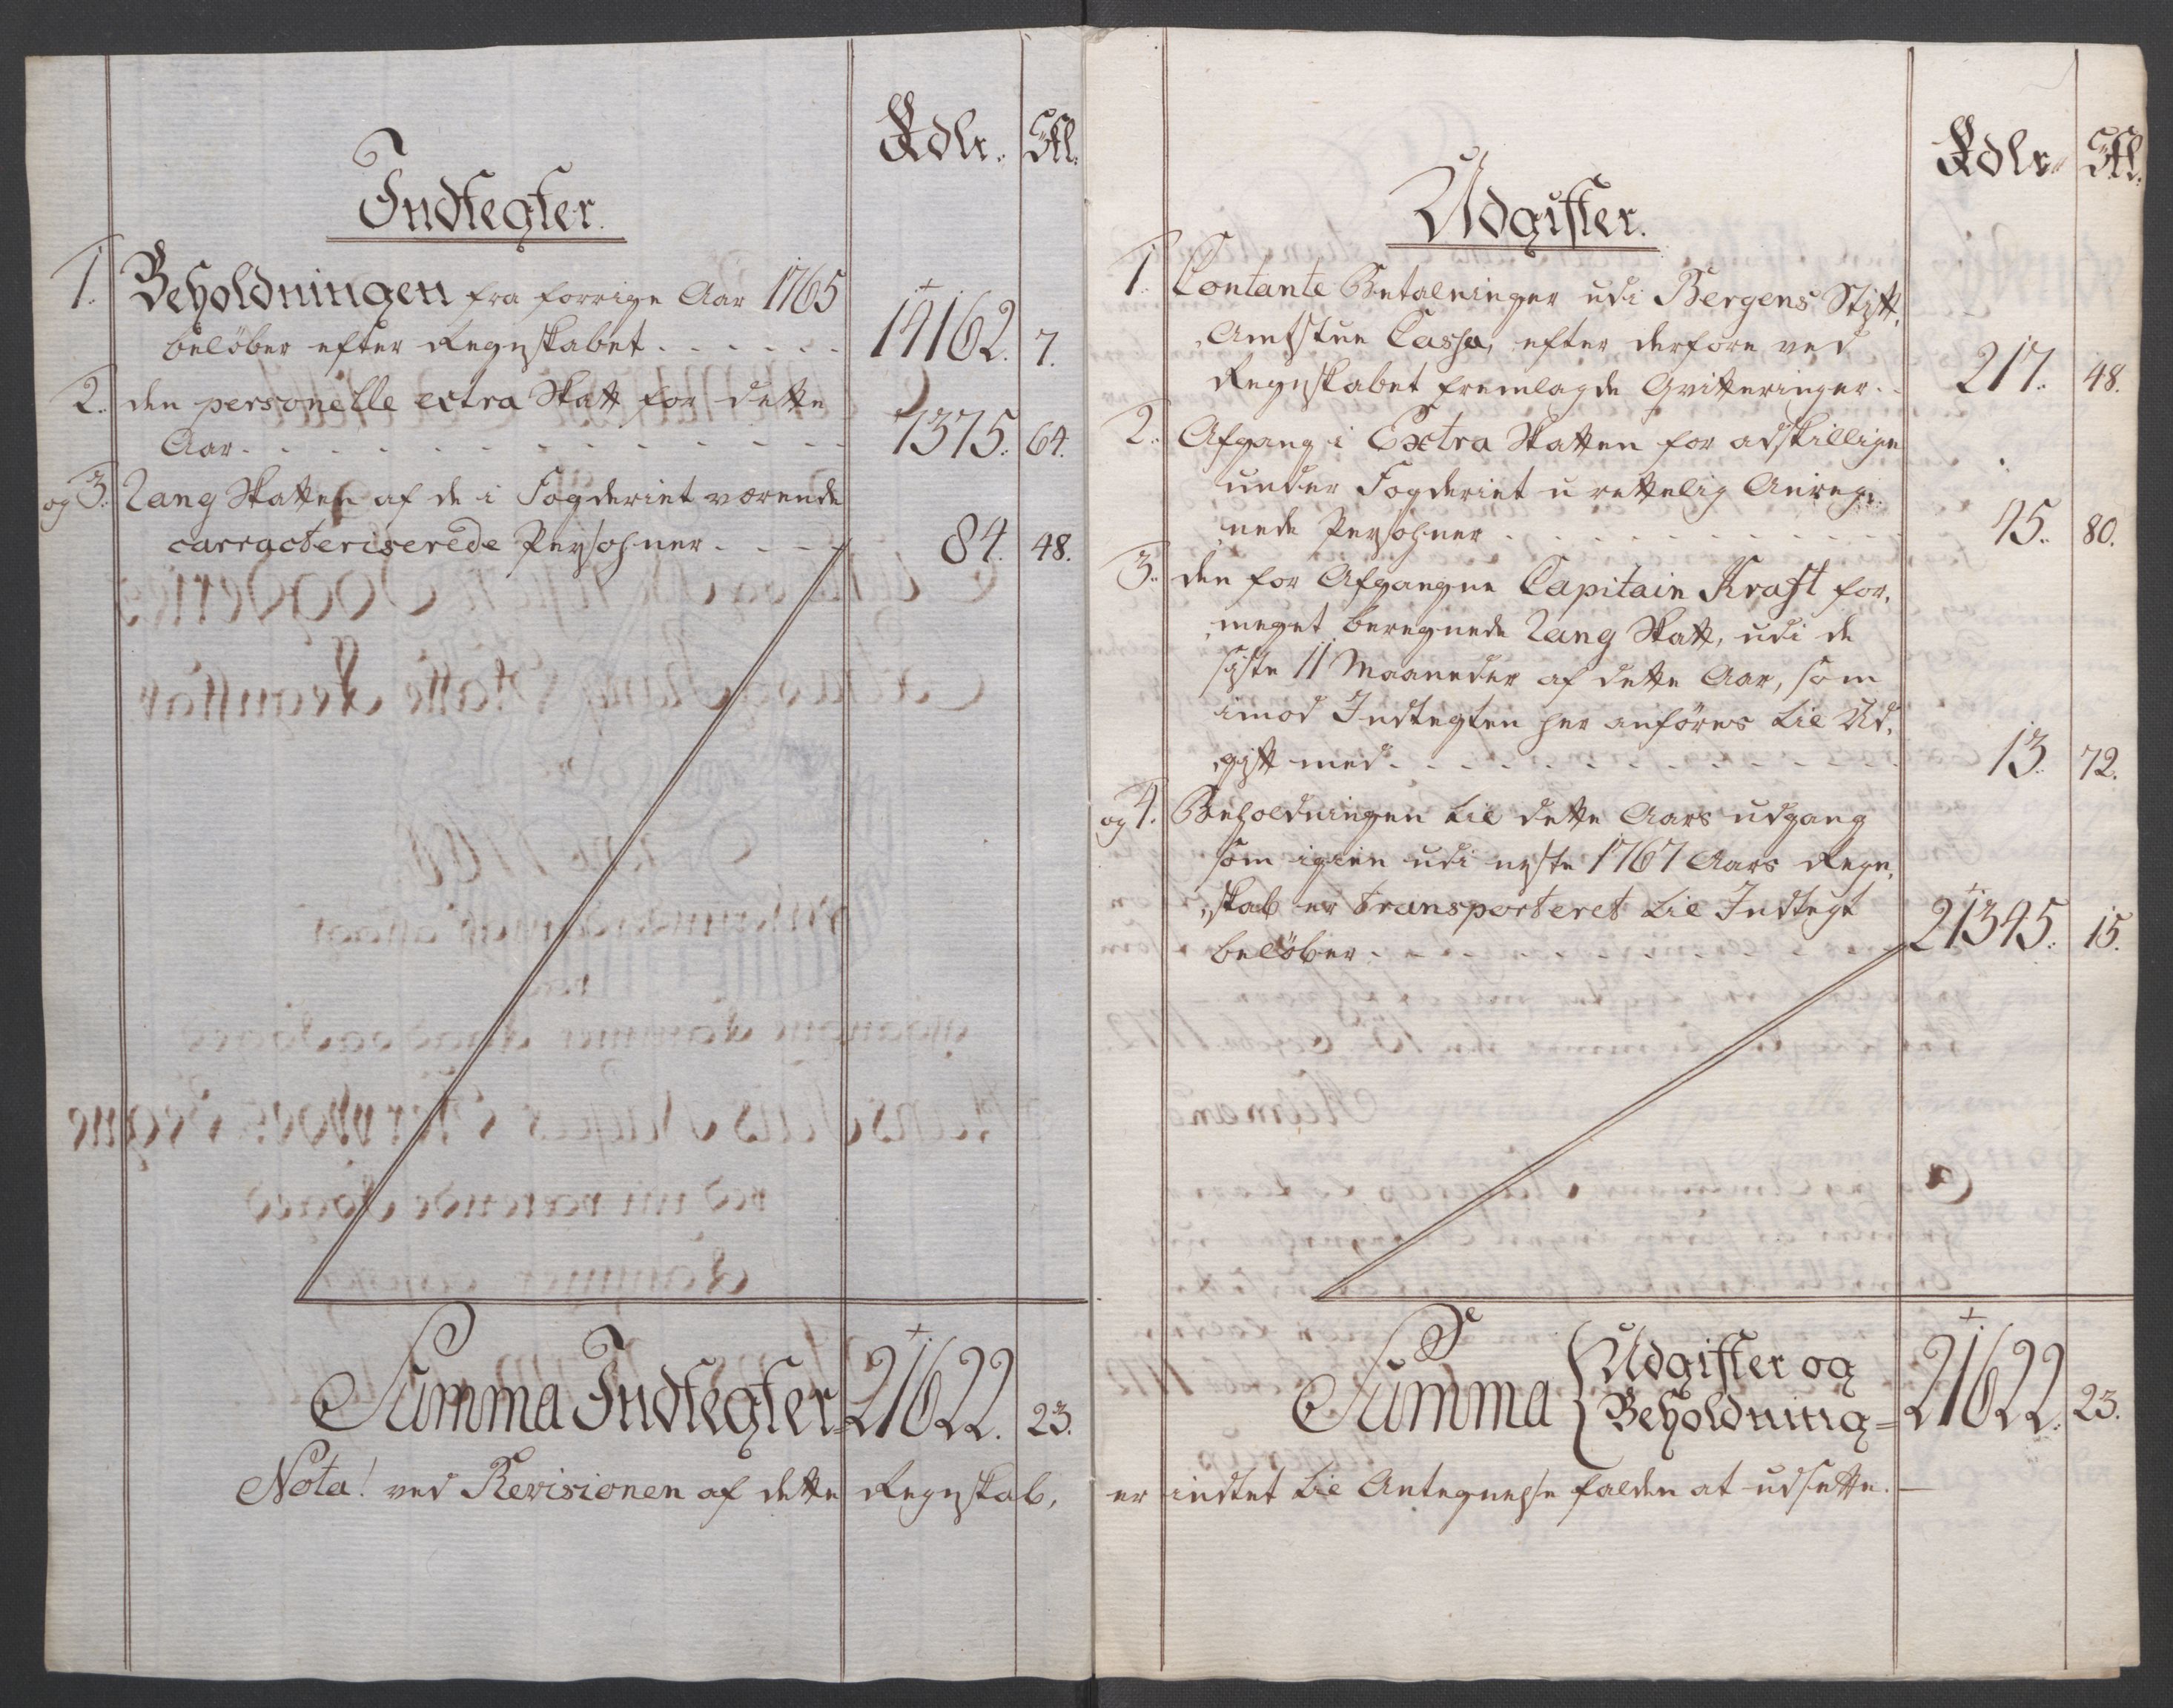 Rdlr. Skl.
Indtegter.
1. Beholdningen fra forrige Aar 1765
beløber efter Regnskabet . . . . . . 14162. 7.
2. den personelle extra Skatt for dette
Aar . . . . . . . . . . 7375. 64.
og 3. Rang Skatten af de i Fogderiet værende
carracteriserede Persohner . . . . 84. 48.
Summa Indtegter 21622. 23.
Nota! ved Revisionen af dette Regnskab,
Rdlr. Skl.
Udgifter.
1. Contante Betalninger udi Bergens Stift
Amtstue Cassa, efter derfore ved
Regnskabet fremlagde Qvitteringer . . 217. 48.
2. Afgang i Extra Skatten for adskillige
under Fogderiet urettelig Anreg-
nede Persohner . . . . . . . . . 45. 80.
3. den for Afgangne Capitain Kraft for
meget beregnede Rang Skatt, udi de
sidste 11 Maaneder af dette Aar, som
imod Indtegten her anføres til Ud-
gift med . . . . . . . . . . 13. 72.
og 4. Beholdningen til dette Aars udgang
som igien udi næste 1767 Aars Regn-
skab er transporteret til Indtegt
beløber . . . . . . . . . . 21345. 15.
Summa Udgifter og
Beholdning = 21622. 23.
er indtet til Antegnelse falden at udsette.